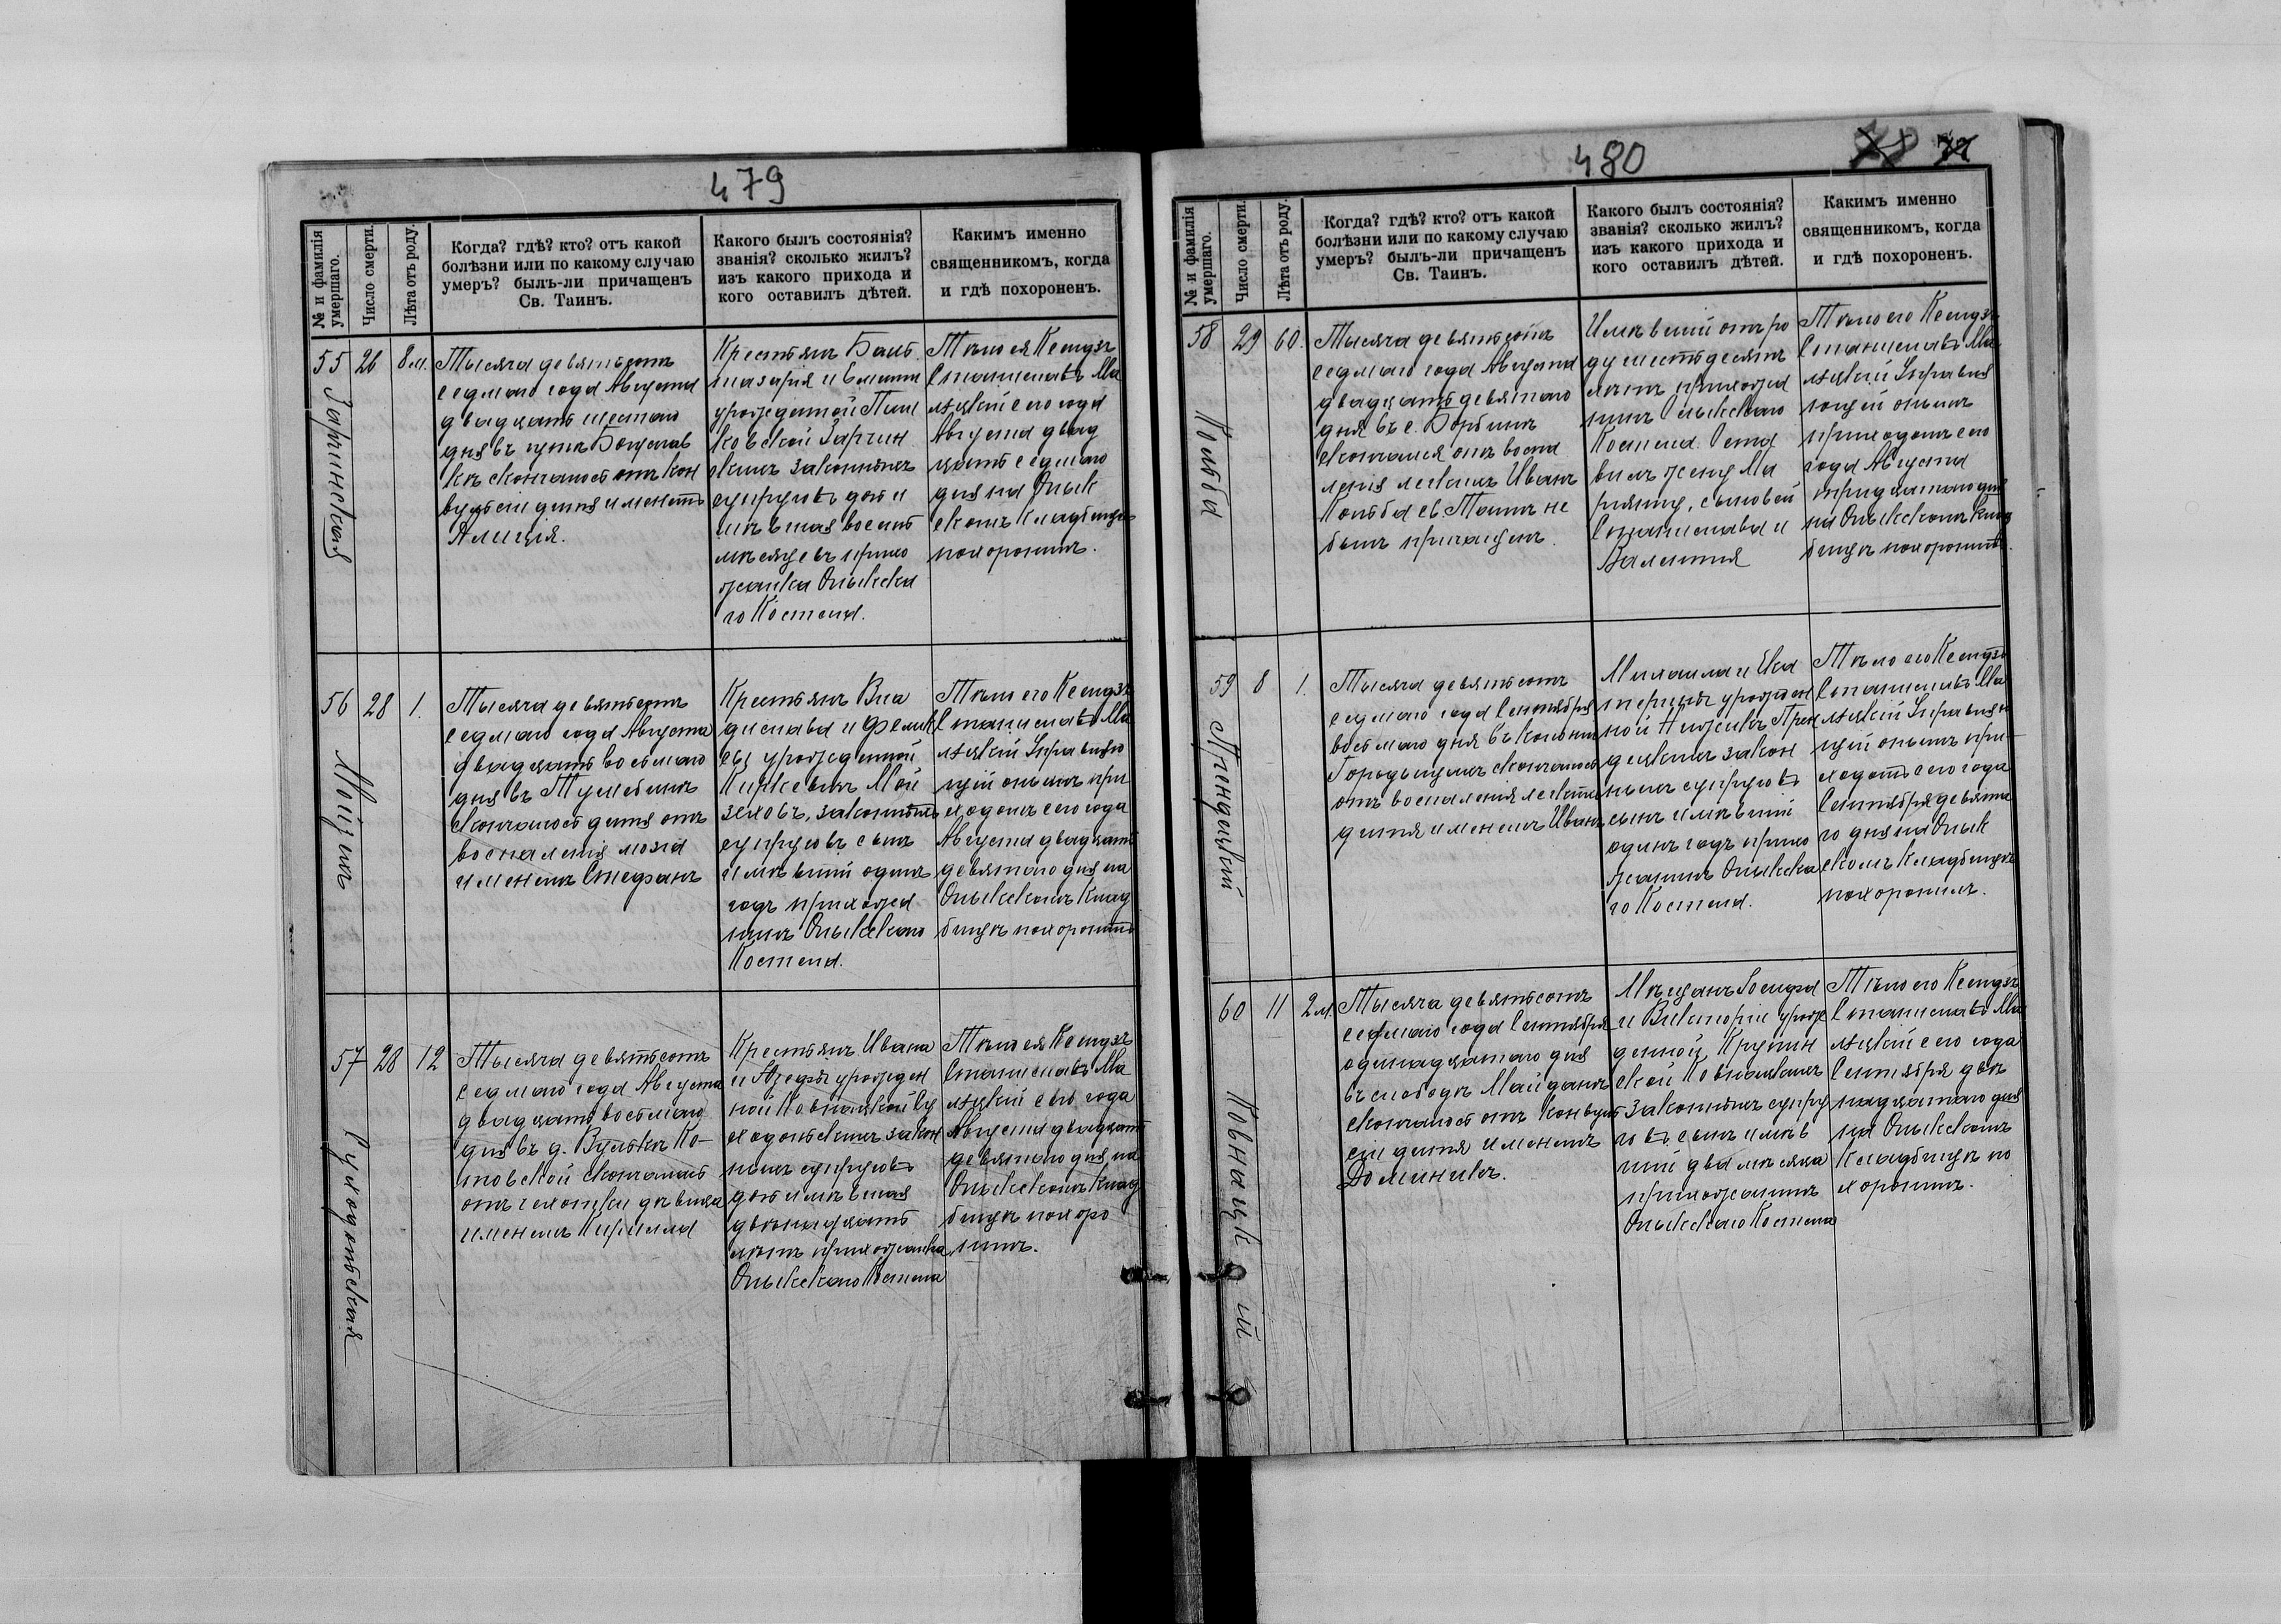 479
№ и фамилія умершаго.
Число смерти.
Лѣта отъ роду.
Когда? гдѣ? кто? отъ какой
болѣзни или по какому случаю
умеръ? былъ-ли причащенъ
Св. Таинъ.
Какого былъ состоянія?
званія? сколько жилъ?
изъ какого прихода и
кого оставилъ дѣтей.
Какимъ именно
священникомъ, когда
и гдѣ похороненъ.
55
26
8 м.
Тысяча девятьсотъ
седмаго года Августа
двадцать шестаго
дня въ
скончалось отъ кон
вульсіи дитя именемъ
Алиція.
Крестьянъ Бальт
тазарія и
урожденной
законныхъ
супруговъ дочь и
мѣвшая восемь
мѣсяцевъ прихо
жанка Олыкска
го Костела.
Тѣло ея Ксендзъ
Станиславъ Ма
лецкій сего года
Августа двад
цать седмаго
дня на Олык
скомъ кладбищѣ
похоронилъ.
56
28
1.
Тысяча девятьсотъ
седмаго года Августа
двадцать восьмаго
дня въ
скончалось дитя отъ
воспаленія мозга
именемъ Стефанъ
Крестьянъ Вла
дислава и Фелик
сы урожденной
законныхъ
супруговъ сынъ
имѣвшій одинъ
годъ прихожа
нинъ Олыкскаго
Костела.
Тѣло его Ксендзъ
Станиславъ Ма
лецкій Управляю
щій онымъ при
ходомъ сего года
Августа двадцать
девятого дня на
Олыкскомъ Клад
бищѣ похоронилъ
57
28
12
Суходольская
Тысяча девятьсотъ
седмаго года Августа
двадцать восьмаго
дня въ д. Вулькѣ Ко-
товской скончалась
отъ чахотки дѣвица
именемъ Кирилла
Крестьянъ Ивана
и Юзефы урожден
ной Ковнацкой Су
ходольскихъ закон
ныхъ супруговъ
дочь имѣвшая
двѣнадцать
лѣтъ прихожанка
Олыкскаго Костела
Тѣло ея Ксендзъ
Станиславъ Ма
лецкій сего года
Августа двадцать
девятого дня на
Олыкскомъ Клад
бищѣ похоро
нилъ.
480
№ и фамилія умершаго.
Число смерти.
Лѣта отъ роду.
Когда? гдѣ? кто? отъ какой
болѣзни или по какому случаю
умеръ? былъ-ли причащенъ
Св. Таинъ.
Какого былъ состоянія?
званія? сколько жилъ?
изъ какого прихода и
кого оставилъ дѣтей.
Какимъ именно
священникомъ, когда
и гдѣ похороненъ.
58
29
60.
Тысяча девятьсотъ
седмаго года Августа
двадцать девятаго
дня въ с.
скончался отъ воспа
ленія легкихъ Иванъ
св. Таинъ не
былъ причащенъ.
Имѣвшій отъ ро
ду шестьдесятъ
лѣтъ прихожа
нинъ Олыкскаго
Костела. Оста
вилъ жену Ма
ріянну, сыновей
Станислава и
Валентія
Тѣло его Ксендзъ
Станиславъ Ма
лецкій Управля
ющій онымъ
приходомъ сего
года Августа
тридцатаго дня
на Олыкскомъ Клад
бищѣ похоронилъ.
59
8
1.
Тысяча девятьсотъ
седмаго года Сентября
восьмаго дня въ колоніи
Городищѣ скончалось
отъ воспаленія легкихъ
дитя именемъ Иванъ
Михаила и Ека
терины урожден
ной
закон
ныхъ супруговъ
сынъ имѣвшій
одинъ годъ прихо
жанинъ Олыкска
го Костела.
Тѣло его Ксендзъ
Станиславъ Ма
лецкій Управляю
щій онымъ при-
ходомъ сего года
Сентября девята
го дня на Олык
скомъ Кладбищѣ
похоронилъ.
60
11
2 м.
Ковнацкій
Тысяча девятьсотъ
седмаго года Сентября
одинадцатаго дня
въ слободѣ Майданѣ
скончалось отъ конвуль
сіи дитя именемъ
Доминикъ.
Мѣщанъ Іосифа
и Викторіи урож
денной Крупин
ской Ковнацкихъ
законныхъ супру
говъ сынъ имѣв
шій два мѣсяца
прихожанинъ
Олыкскаго Костела
Тѣло его Ксендзъ
Станиславъ Ма
лецкій сего года
Сентября двѣ
надцатаго дня
на Олыкскомъ
Кладбищѣ по
хоронилъ.